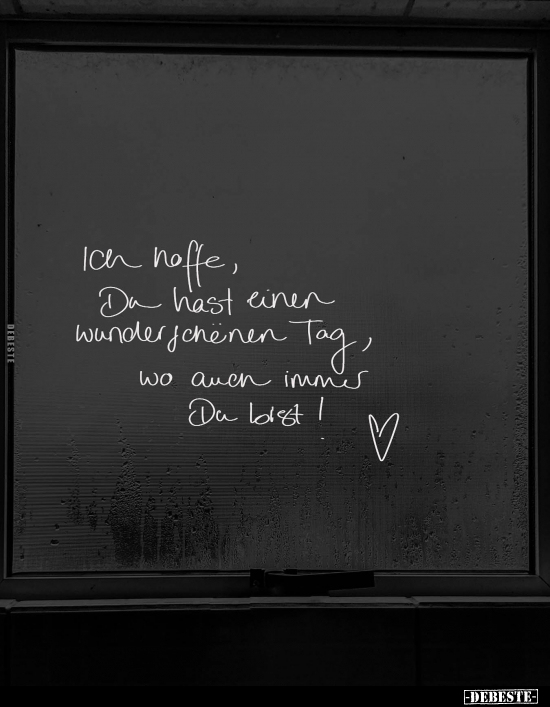 Ich hoffe,
Du hast einen
wunderschönen Tag,
wo auch immer
Du bist!
DEBESTE
-DEBESTE-